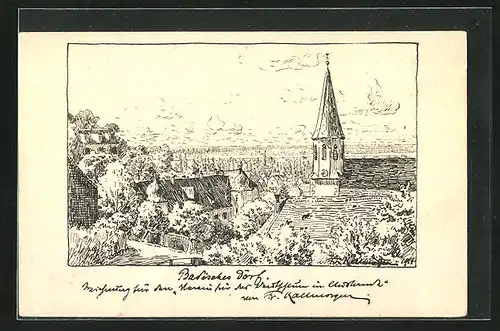 Badisches Dorf.
Zeichnung für den „Verein für das Deutschtum im Ausland"
von Fr. Kallmorgen